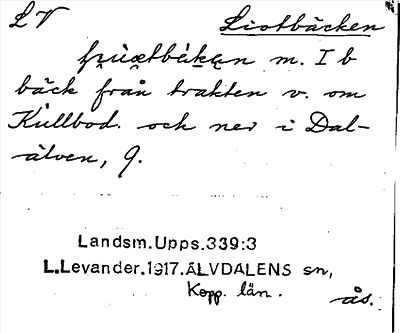 LV Liotbäcken
m. I b
bäck från trakten v. om
Kullbod. och ner i Dal-
älven, 9.
Landsm.Upps.339:3
L.Levander.1917.ÄLVDALENS sn,
Kopp. län.
ås.